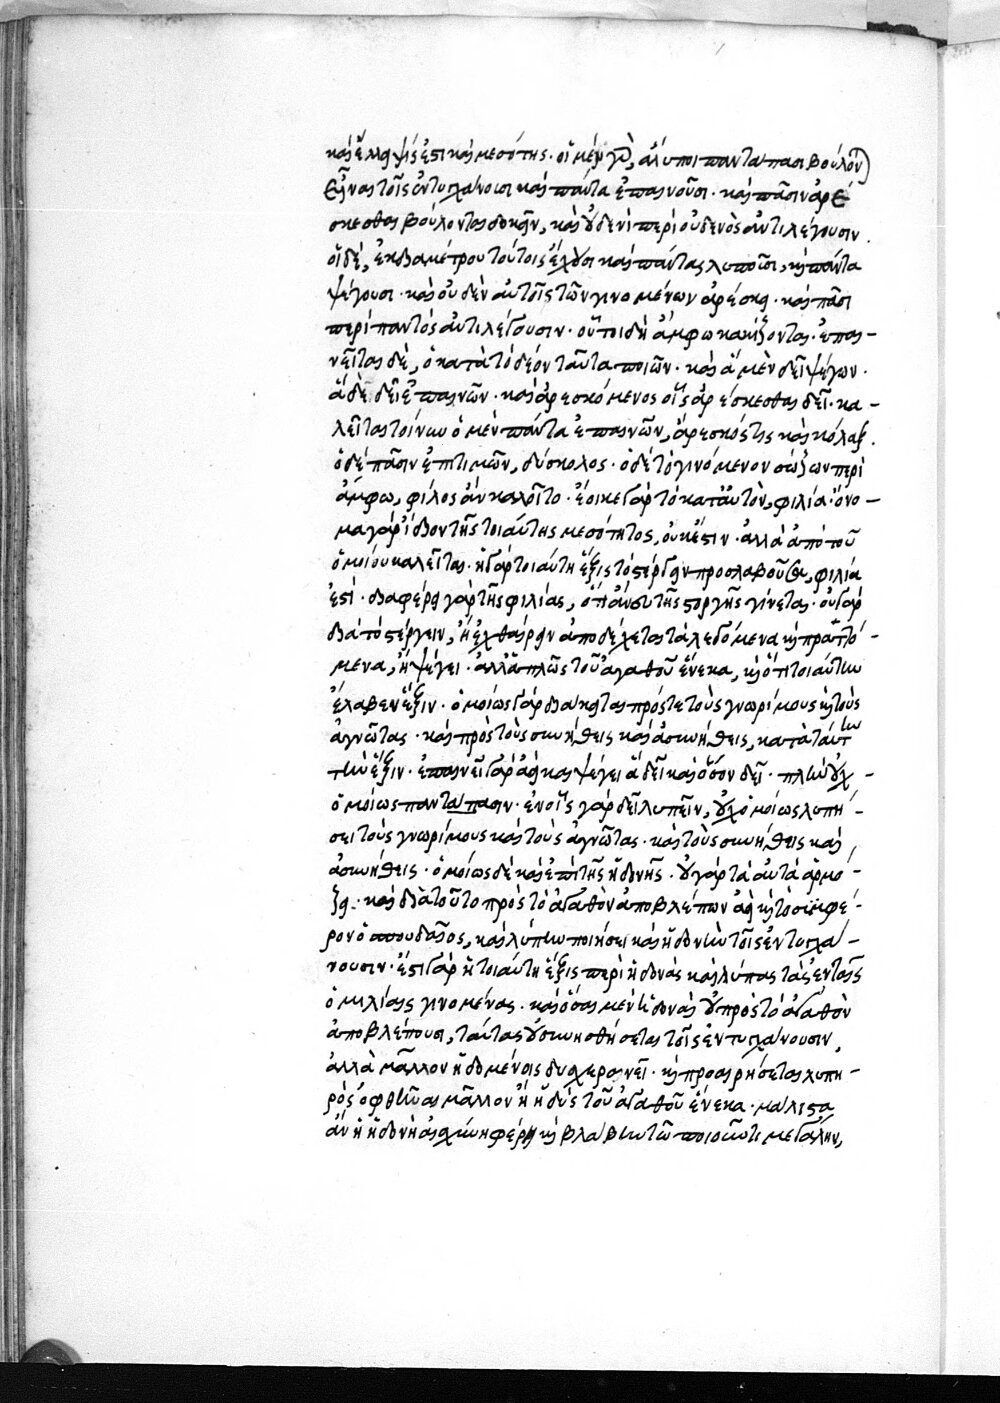 καὶ ἔλλειψίς ἐστι καὶ μεσότης· οἱ μὲν γὰρ, ἄλυποι παντάπασι βουλόν)
εἶναι τοῖς ἐντυγχάνουσι καὶ πάντα ἐπαινοῦσι· καὶ πᾶσιν ἀρέ
σκεσθαι βούλονται δοκεῖν, καὶ οὐδενὶ περὶ οὐδενὸς ἀντιλέγουσιν.
οἱ δέ, ἐκ διαμέτρου τούτοις ἔχουσι καὶ πάντας λυποῦσι, καὶ πάντα
ψέγουσι· καὶ οὐδὲν αὐτοῖς τῶν γινομένων ἀρέσκει· καὶ πᾶσι
περὶ παντὸς ἀντιλέγουσιν· οὗτοι δὴ ἄμφω κακίζονται· ἐπαι-
νεῖται δὲ, ὁ κατὰ τὸ δέον ταῦτα ποιῶν· καὶ ἃ μὲν δεῖ ψέγων.
ἃ δὲ δεῖ ἐπαινῶν· καὶ ἀρεσκόμενος οἷς ἀρέσκεσθαι δεῖ· κα-
λεῖται τοίνυν ὁ μὲν πάντα ἐπαινῶν, ἄρεσκός τις καὶ κόλαξ.
ὁ δὲ πᾶσιν ἐπιτιμῶν, δύσκολος· ὁ δὲ τὸ γινόμενον σώζων περὶ
ἄμφω, φίλος ἂν καλοῖτο· ἔοικε γὰρ τὸ κατ' αὐτὸν, φιλία· ὄνο-
μα γὰρ ἴδιον τῆς τοιαύτης μεσότητος, οὐκ ἔστιν· ἀλλὰ ἀπὸ τοῦ
ὁμοίου καλεῖται· ἡ γὰρ τοιαύτη ἕξις τὸ στέργειν προσλαβοῦσα, φιλία
ἐστί· διαφέρει γὰρ τῆς φιλίας, ὅτι ἄνευ τῆς στοργῆς γίνεται· οὐ γὰρ
διὰ τὸ στέργειν, ἢ ἐχθαίρειν ἀποδέχεται τὰ λεγόμενα καὶ πραττό-
μενα, ἢ ψέγει· ἀλλ' ἁπλῶς τοῦ ἀγαθοῦ ἕνεκα, καὶ ὅτι τοιαύτην
ἔλαβεν ἕξιν· ὁμοίως γὰρ διάκειται πρός τε τοὺς γνωρίμους καὶ τοὺς
ἀγνῶτας· καὶ πρὸς τοὺς συνήθεις καὶ ἀσυνήθεις, κατὰ ταύτην
τὴν ἕξιν· ἐπαινεῖ γὰρ ἀεὶ καὶ ψέγει ἃ δεῖ καὶ ὅσον δεῖ· πλὴν οὐχ-
ὁμοίως παντάπασιν· ἐν οἷς γὰρ δεῖ λυπεῖν, οὐχ ὁμοίως λυπή-
σει τοὺς γνωρίμους καὶ τοὺς ἀγνῶτας· καὶ τοὺς συνήθεις καὶ
ἀσυνήθεις· ὁμοίως δὲ καὶ ἐπὶ τῆς ἡδονῆς· οὐ γὰρ τὰ αὐτὰ ἁρμό-
ζει· καὶ διὰ τοῦτο πρὸς τὸ ἀγαθὸν ἀποβλέπων ἀεὶ καὶ τὸ συμφέ-
ρον ὁ σπουδαῖος, καὶ λύπην ποιήσει καὶ ἡδονὴν τοῖς ἐντυγχά-
νουσιν· ἔστι γὰρ ἡ τοιαύτη ἕξις περὶ ἡδονὰς καὶ λύπας τὰς ἐν ταῖς
ὁμιλίαις γινομένας· καὶ ὅσαι μὲν ἡδοναὶ οὐ πρὸς τὸ ἀγαθὸν
ἀποβλέπουσι, ταύτας οὐ συνησθήσεται τοῖς ἐντυγχάνουσιν,
ἀλλὰ μᾶλλον ἡδομένοις δυσχεραινεῖ· καὶ προαιρήσεται λυπη-
ρὸς ὀφθῆναι μᾶλλον ἢ ἡδὺς τοῦ ἀγαθοῦ ἕνεκα· μάλιστα
ἂν ἡ ἡδονὴ φέρῃ καὶ βλάβην τῷ ποιοῦντι μεγάλην,